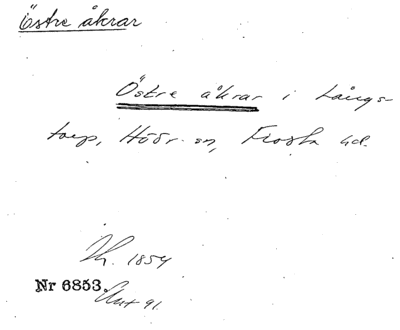 Östre åkrar
Östre åkrar i Långs-
torp, Höör sn, Frosta hd.
1854
Nr 6853.
Akt 91.